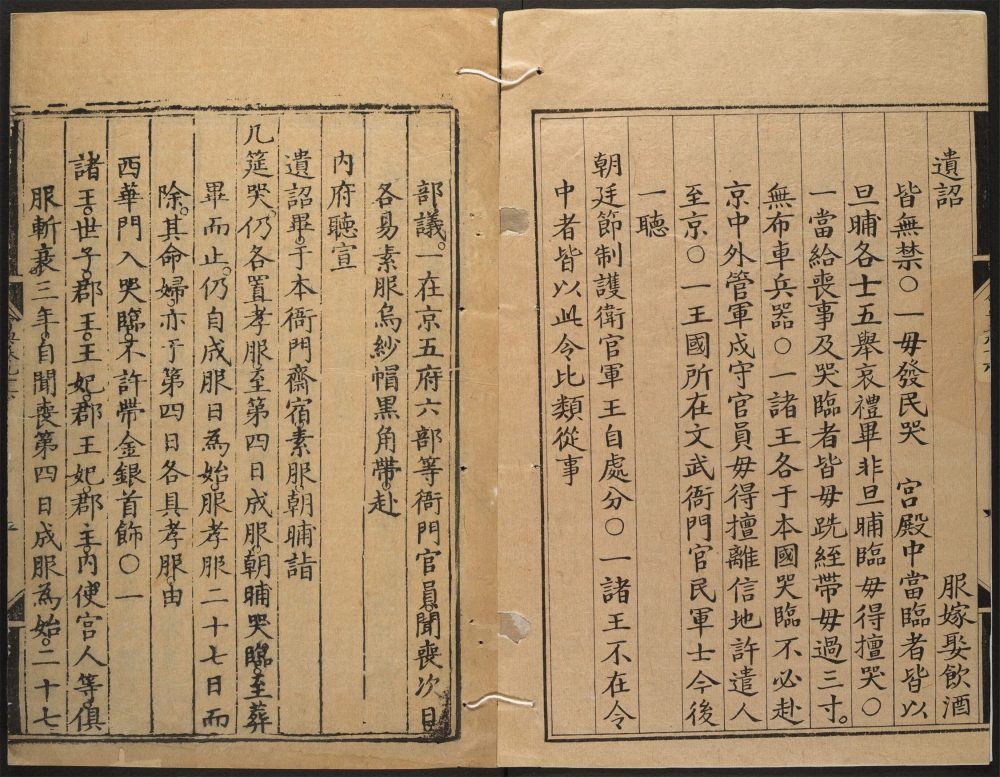 遺詔　服嫁娶飲酒
皆無禁○一毋發民哭　宮殿中當臨者皆以
旦晡各士五舉哀禮畢非旦晡臨毋得擅哭○
一當給喪事及哭臨者皆毋跣絰帶毋過三寸。
無布車兵器○一諸王各于本國哭臨不必赴
京中外管軍戍守官員毋得擅離信地許遣人
至京○一王國所在文武衙門官民軍士今後
一聽
朝廷節制護衛官軍王自處分○一諸王不在令
中者皆以此令比類從事
部議。一在京五府六部等衙門官員聞喪次日
各易素服烏紗帽黑角帶。赴
內府聽宣
遺詔畢。于本衙門齋宿素服朝晡詣
几筵哭。仍各置孝服。至第四日成服。朝晡哭臨。至葬
畢而止。仍自成服日為始。服孝服二十七日而
除。其命婦。亦于第四日各具孝服。由
西華門入哭臨。不許帶金銀首飾○一
諸王。世子。郡王。王妃。郡王妃。郡主。內使宮人等。俱
服斬衰。三年。自聞喪第四日成服為始。二十七